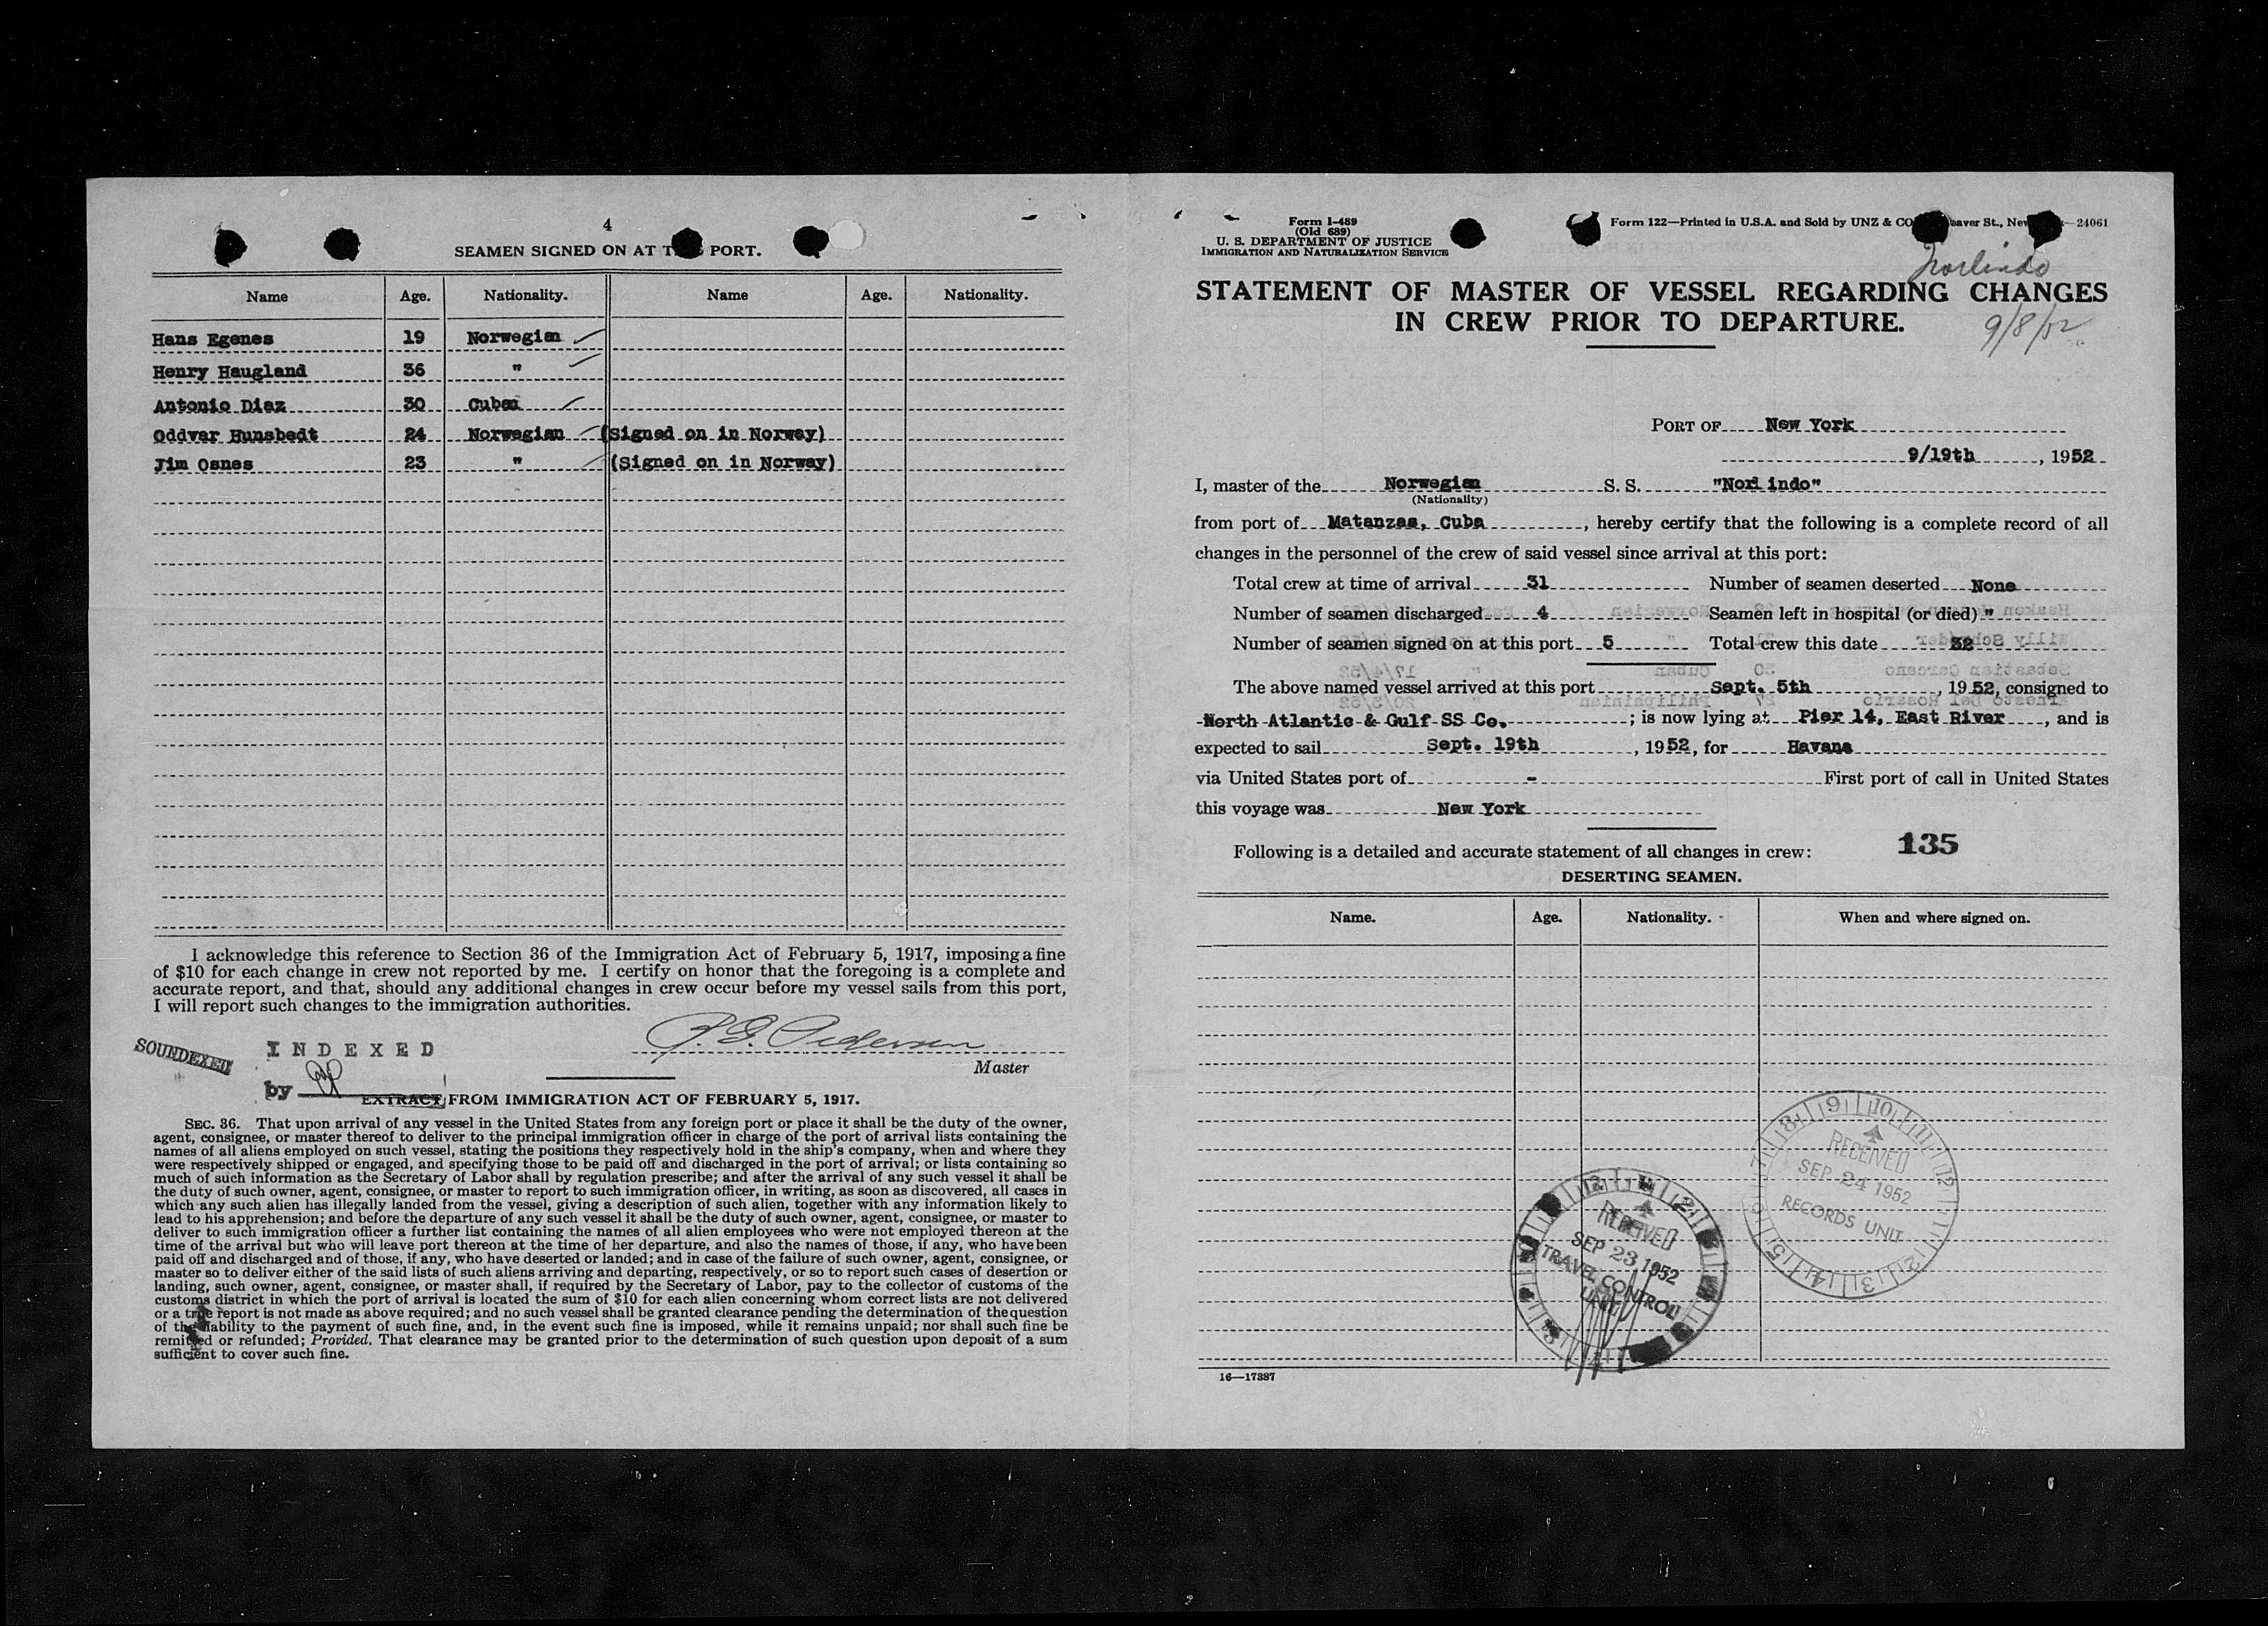 4
SEAMEN SIGNED ON AT PORT.
Name Age. Nationality. Name Age. Nationality.
Hans Egenes 19 Norwegian
Henry Haugland 36 "
Antonio Diaz 30 Cuban
Oddvar Hunsbedt 24 Norwegian (Signed on in Norway)
Jim Osnes 23 " (Signed on in Norway)
I acknowledge this reference to Section 36 of the Immigration Act of February 5, 1917, imposing a fine
of $10 for each change in crew not reported by me. I certify on honor that the foregoing is a complete and
accurate report, and that, should any additional changes in crew occur before my vessel sails from this port,
I will report such changes to the immigration authorities.
SOUNDEXED
INDEXED
by
Pedersen
Master
EXTRACT FROM IMMIGRATION ACT OF FEBRUARY 5, 1917.
SEC. 36. That upon arrival of any vessel in the United States from any foreign port or place it shall be the duty of the owner,
agent, consignee, or master thereof to deliver to the principal immigration officer in charge of the port of arrival lists containing the
names of all aliens employed on such vessel, stating the positions they respectively hold in the ship's company, when and where they
were respectively shipped or engaged, and specifying those to be paid off and discharged in the port of arrival; or lists containing so
much of such information as the Secretary of Labor shall by regulation prescribe; and after the arrival of any such vessel it shall be
the duty of such owner, agent, consignee, or master to report to such immigration officer, in writing, as soon as discovered, all cases in
which any such alien has illegally landed from the vessel, giving a description of such alien, together with any information likely to
lead to his apprehension; and before the departure of any such vessel it shall be the duty of such owner, agent, consignee, or master to
deliver to such immigration officer a further list containing the names of all alien employees who were not employed thereon at the
time of the arrival but who will leave port thereon at the time of her departure, and also the names of those, if any, who have been
paid off and discharged and of those, if any, who have deserted or landed; and in case of the failure of such owner, agent, consignee, or
master so to deliver either of the said lists of such aliens arriving and departing, respectively, or so to report such cases of desertion or
landing, such owner, agent, consignee, or master shall, if required by the Secretary of Labor, pay to the collector of customs of the
customs district in which the port of arrival is located the sum of $10 for each alien concerning whom correct lists are not delivered
or a true report is not made as above required; and no such vessel shall be granted clearance pending the determination of the question
of the liability to the payment of such fine, and, in the event such fine is imposed, while it remains unpaid; nor shall such fine be
remitted or refunded; Provided, That clearance may be granted prior to the determination of such question upon deposit of a sum
sufficient to cover such fine.
Form I-489
(Old 689)
U. S. DEPARTMENT OF JUSTICE
IMMIGRATION AND NATURALIZATION SERVICE
Form 122—Printed in U.S.A. and Sold by UNZ & CO St., New —24061
Norlindo
STATEMENT OF MASTER OF VESSEL REGARDING CHANGES
IN CREW PRIOR TO DEPARTURE.
9/8/52
PORT OF New York
9/19th, 1952
I, master of the Norwegian S. S. "Norlindo"
(Nationality)
from port of Matanzas, Cuba, hereby certify that the following is a complete record of all
changes in the personnel of the crew of said vessel since arrival at this port:
Total crew at time of arrival 31 Number of seamen deserted None
Number of seamen discharged 4 Seamen left in hospital (or died) "
Number of seamen signed on at this port 5 Total crew this date 32
The above named vessel arrived at this port Sept. 5th, 1952, consigned to
North Atlantic & Gulf SS Co. ; is now lying at Pier 14, East River, and is
expected to sail Sept. 19th, 1952, for Havana
via United States port of - First port of call in United States
this voyage was New York
135
Following is a detailed and accurate statement of all changes in crew:
DESERTING SEAMEN.
Name. Age. Nationality. When and where signed on.
RECEIVED
SEP 24 1952
RECORDS UNIT
RECEIVED
SEP 23 1952
TRAVEL CONTROL
UNIT
16—17387